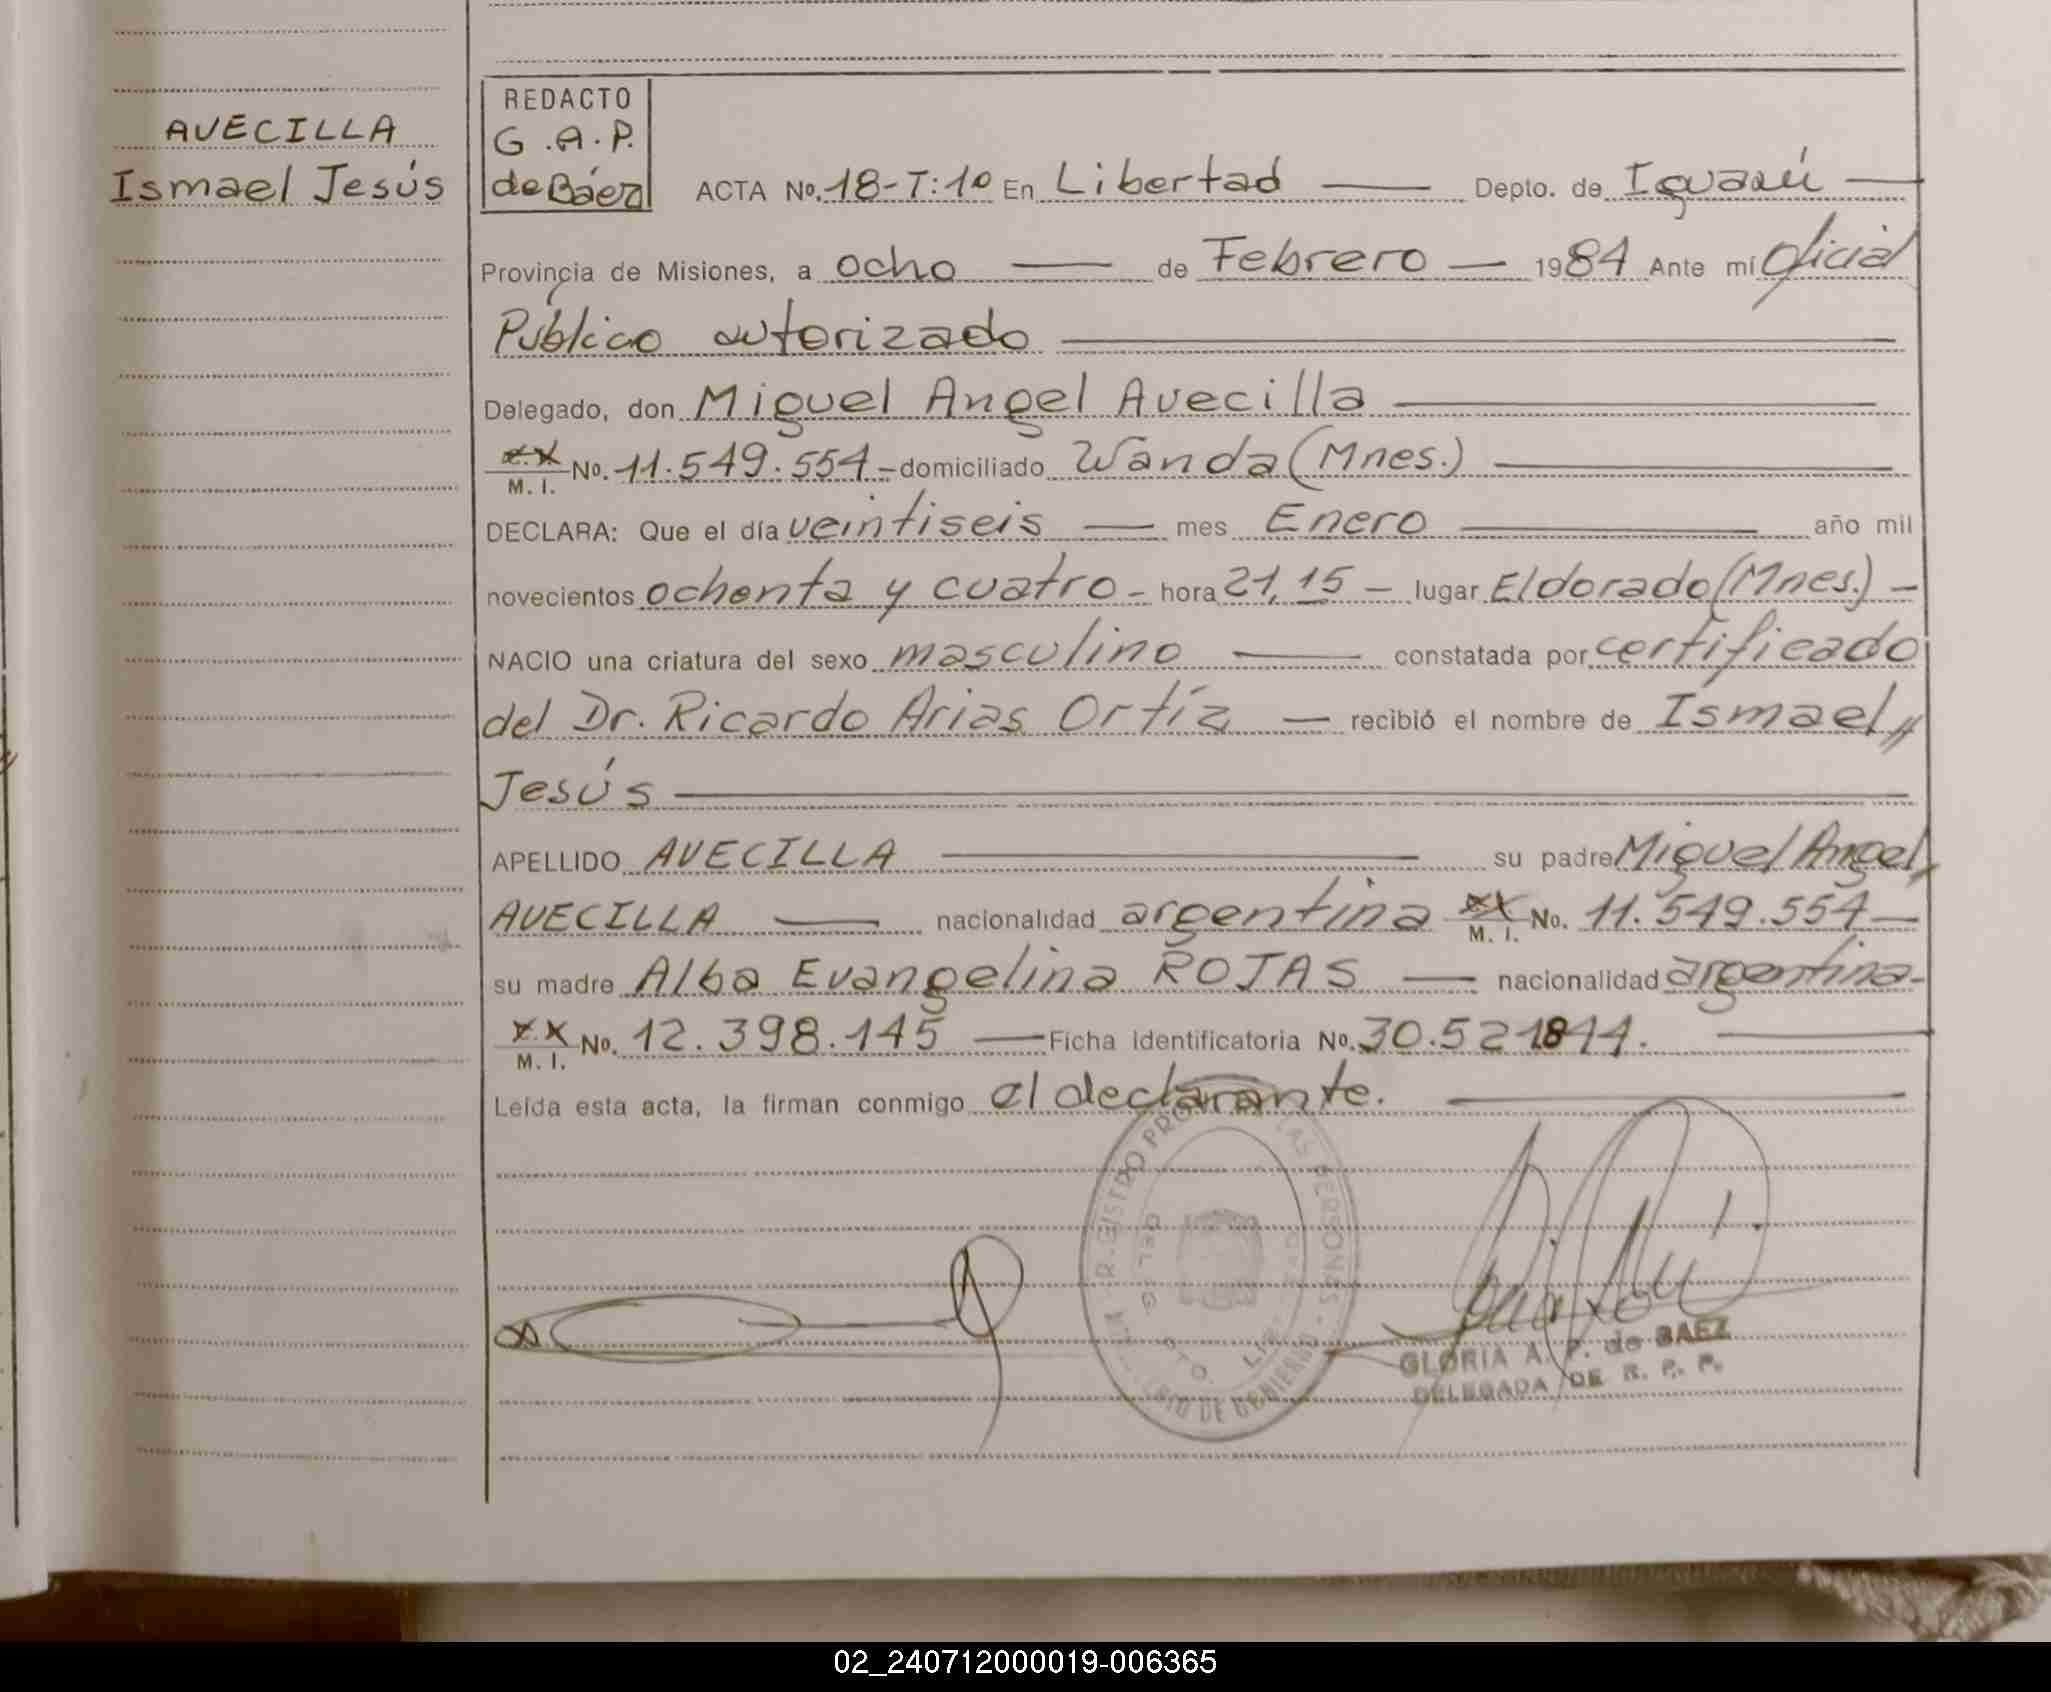 AVECILLA
Ismael Jesús
REDACTO
G.A.P.
de Báez
ACTA No. 18-T:1º En Libertad Depto. de Iguazú
Provincia de Misiones, a ocho de Febrero 1984 Ante mí Oficial
Público autorizado
Delegado, don Miguel Angel Avecilla
M. I. No. 11.549.554.- domiciliado Wanda (Mnes.)
DECLARA: Que el día veintiseis mes Enero año mil
novecientos ochenta y cuatro - hora 21,15 - lugar Eldorado (Mnes.) -
NACIO una criatura del sexo masculino constatada por certificado
del Dr. Ricardo Arias Ortíz - recibió el nombre de Ismael //
Jesús
APELLIDO AVECILLA su padre Miguel Angel,
AVECILLA nacionalidad argentina M. I. No. 11.549.554
su madre Alba Evangelina ROJAS nacionalidad argentina-
M. I. No. 12.398.145 Ficha identificatoria No. 30.521844.
Leída esta acta, la firman conmigo el declarante.
GLORIA A. P. de BAEZ
DELEGADA DE R. P. P.
02_240712000019-006365